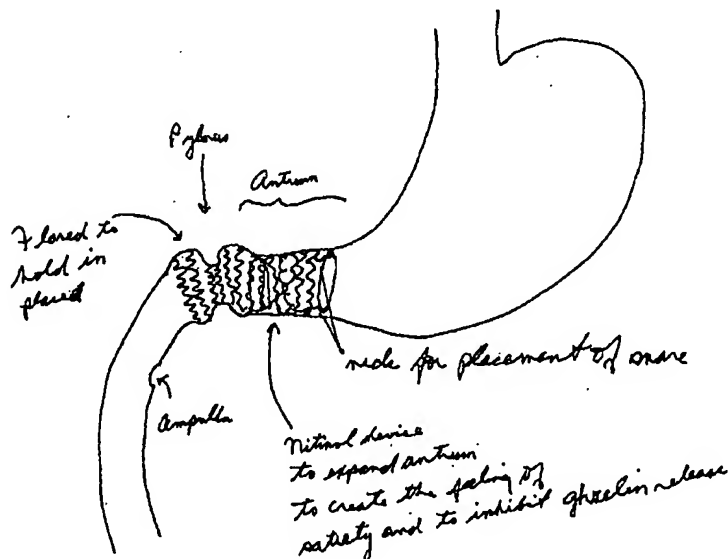 Pylorus
Antrum
Flared to
hold in
placed
neck for placement of snare
Ampulla
Nitinol device
to expand antrum
to create the feeling of
satiety and to inhibit ghrelin release